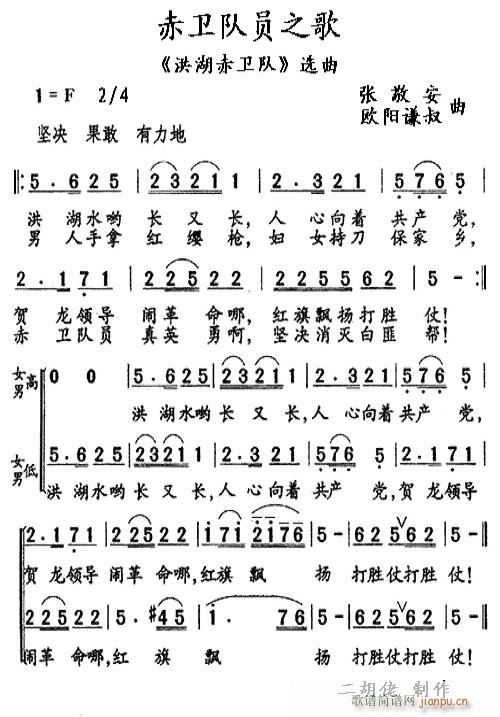 赤卫队员之歌
《洪湖赤卫队》选曲
1=F 2/4
张敬安
欧阳谦叔 曲
坚决 果敢 有力地
‖: 5·625 | 23211 | 2·321 | 5765 |
洪 湖水哟 长 又 长,人 心向着 共产 党,
男 人手拿 红 缨 枪,妇 女持刀 保家 乡,
2·171 | 22522 | 22255562 | 5 - :‖
贺 龙领导 闹革 命哪,红旗飘扬打胜 仗!
赤 卫队员 真英 勇啊,坚决消灭白匪 帮!
女高男 0 0 | 5·625 | 23211 | 2·321 | 5765 |
洪 湖水哟 长 又 长,人 心向着共产 党,
女低男 5·625 | 23211 | 2·321 | 5765 | 2·171 |
洪 湖水哟 长 又 长,人 心向着 共产 党,贺 龙领导
2·171 | 22522 | 1712176 | 5 - | 562562 | 5 - |
贺 龙领导 闹革 命哪,红旗 飘 扬 打胜仗打胜 仗!
22522 | 5·#45 | 1·76 | 5 - | 562562 | 5 - |
闹革 命哪,红 旗 飘 扬 打胜仗打胜 仗!
二胡佬 制作
歌谱简谱网
jianpu.cn